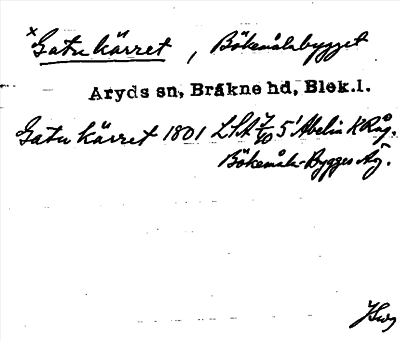 x Gatu kärret , Bökemålabygget
Aryds sn, Bräkne hd, Blek.l.
Gatu kärret 1801 LSA 7/40 5' Abelin K Råg.
Bökemåla-Bygges Äg.